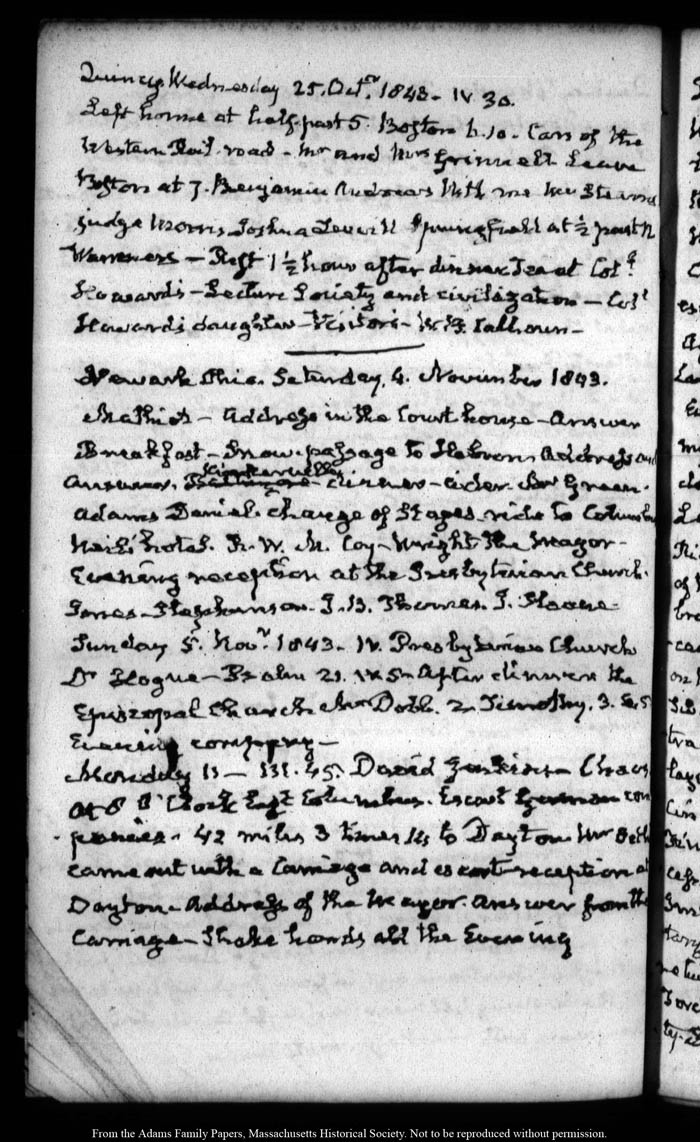 Quincy Wednesday 25. Octr. 1843. IV. 30.
Left home at half past 5. Boston 6.10. Cars of the
Western Rail-road - Mr and Mrs Grinnell Leave
Boston at 7. Benjamin Andrews with me Mr Stearns
judge Morris Joshua Leavitt Springfield at ½ past 12
Warreners - Rest 1½ hour after dinner Tea at Coll.
Howards - Lecture Society and civilization - Coll
Howards daughter - Visitors - W. B. Calhoun -
Newark Ohio. Saturday, 4. November 1843.
Mathiot - Address in the Court house - Answer
Breakfast - Snow. passage to Hebron Address and
answer. Kirkersville - dinner - cider. Mr Green.
Adams Daniel. change of Stages. ride to Columbus
Neil's hotel. R. W. M. Coy - Wright the Mayor -
Evening reception at the Presbyterian Church.
Jones - Stephenson. J. B. Thomas. J.
Sunday 5. Novr. 1843. IV. Presbyterian Church
Dr Hogue - Psalm 21. After dinner the
Episcopal Church Mr Dobb. 2. Timothy, 3.
Evening company -
Monday 6 - III. 45. David
at 8 O'Clock left Columbus. Escort German com
panies. 42 miles to Dayton. Mr
came out with a Carriage and escort - reception at
Dayton - Address of the Mayor. answer from the
Carriage - Shake hands all the Evening
From the Adams Family Papers, Massachusetts Historical Society. Not to be reproduced without permission.